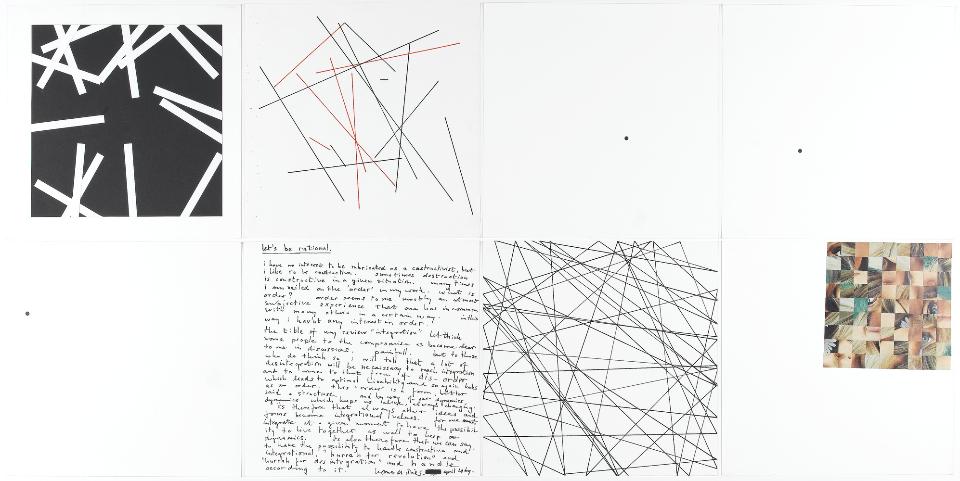 let's be rational.
i have no interest to be rubricated as a constructivist, but
i like to be constructive. sometimes destruction
is constructive in a given situation. many times
i am nailed on the 'order' in my work. what is
order? order seems to me mostly an almost
subjective experience that one has in common
with many others in a certain way. in this
way i havent any interest in order.
the title of my review "integration" let think
some people to the compromise as became clear
to me in discussions. but to those
who do think so i will tell that a lot of
desintegration will be necessary to reach integration
and to that form of dis-order
which leads to optimal and again looks
as an order. this 'order' is a form, better
said a structure, and by way of your dynamics,
dynamics which keeps us always changing.
is therefore that always other ideas and
forms become integrational values. for me must
integrate at a given moment to have the possibil-
ity to live together as well to keep on
dynamics. is also therefore that we can say
to have the possibility to handle constructive and
integrational, "hurrah for revolution" and
"hurrah for desintegration" and handle
according to it. april